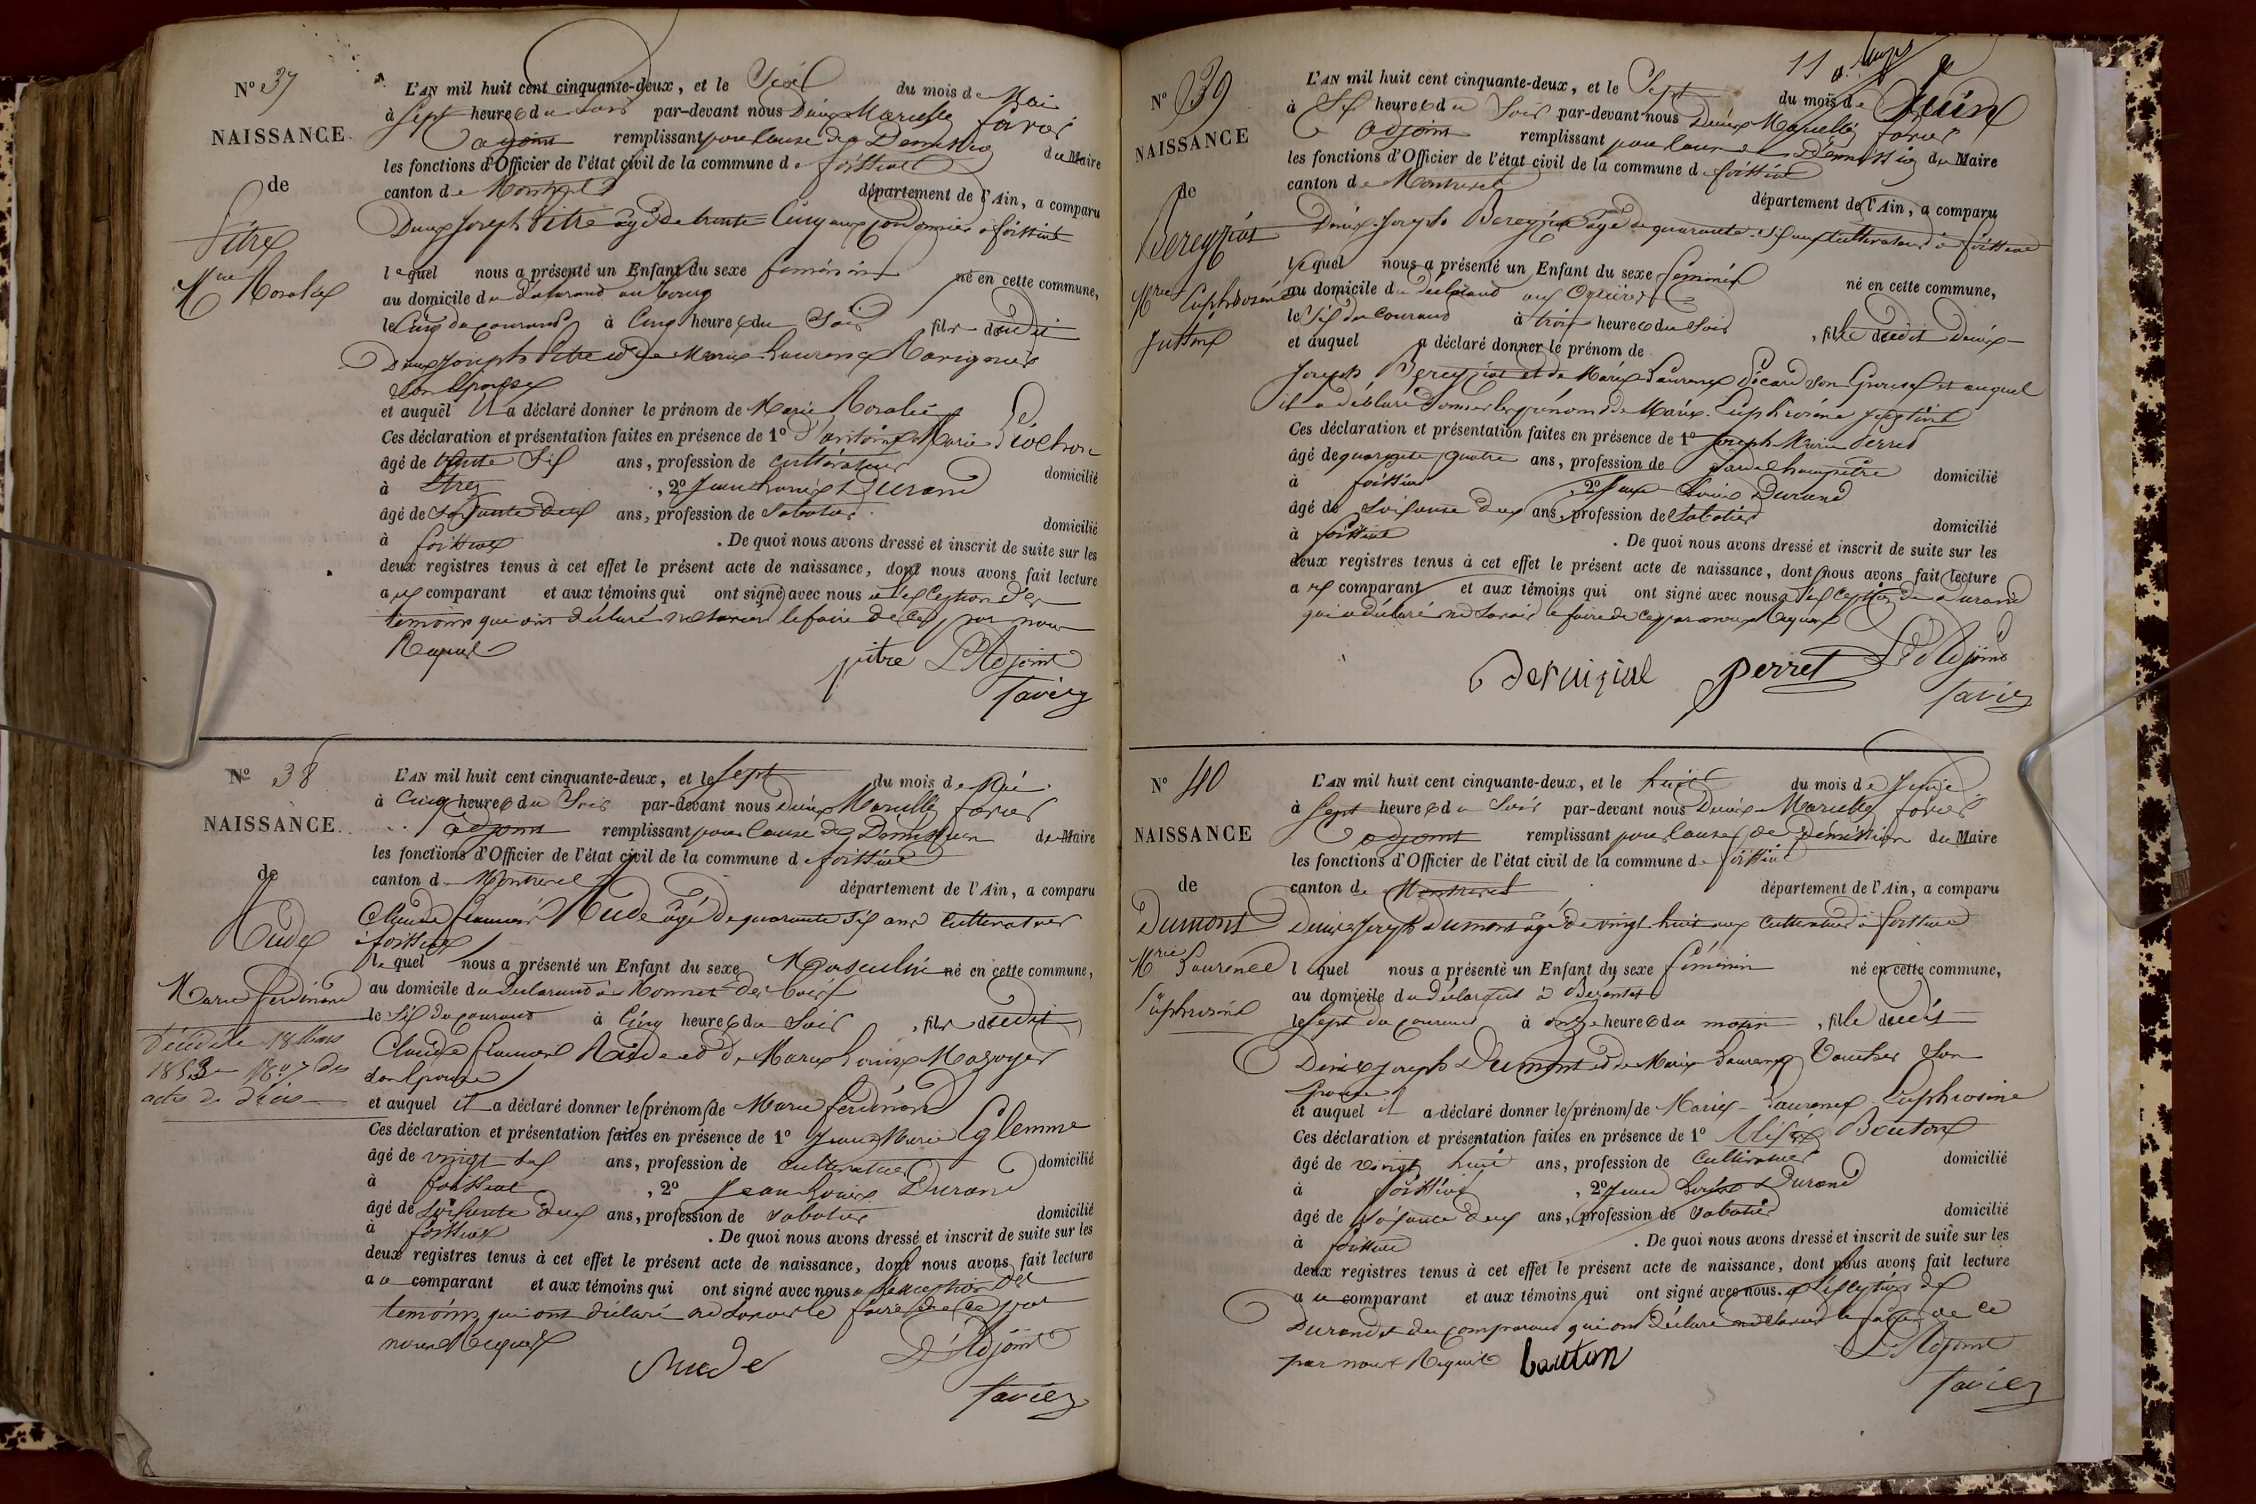 N° 37
NAISSANCE
de
Pitre
Mie Rosalie
L'AN mil huit cent cinquante-deux, et le Six du mois de Mai
à Sept heures du Soir par-devant nous Denis Marcelle favier
adjoint remplissant pour cause de Demission du Maire
les fonctions d'Officier de l'état civil de la commune de foissiat
canton de Montrevel département de l'Ain, a comparu
Denis Joseph Pitre agé de trente Cinq ans Cordonnier à foissiat
lequel nous a présenté un Enfant du sexe feminin né en cette commune,
au domicile du Déclarant au bourg
le Cinq du courant à Cinq heures du Soir, fille dudit
Denis Joseph Pitre et de Marie Laurence
Son Epouse
et auquel il a déclaré donner le prénom de Marie Rosalie
Ces déclaration et présentation faites en présence de 1° Antoine Marie Piochon
âgé de Six ans, profession de cultivateur domicilié
à Etrez, 2° Jean Louis Durand
âgé de Soixante deux ans, profession de Sabotier domicilié
à foissiat. De quoi nous avons dressé et inscrit de suite sur les
deux registres tenus à cet effet le présent acte de naissance, dont nous avons fait lecture
au comparant et aux témoins qui ont signé avec nous à l'exception des
temoins qui ont déclaré ne Savoir le faire de ce par nous
Requis
pitre L'Adjoint
favier
N° 38
NAISSANCE
de
Rude
Marie ferdinand
Décédé le 18 Mars
1853 N° 7 des
actes de décès
L'AN mil huit cent cinquante-deux, et le Sept du mois de Mai
à Cinq heures du Soir par-devant nous Denis Marcelle favier
adjoint remplissant pour Cause de Demission du Maire
les fonctions d'Officier de l'état civil de la commune de foissiat
canton de Montrevel département de l'Ain, a comparu
Claude francois Rude âgé de quarante Six ans Cultivateur
à foissiat
lequel nous a présenté un Enfant du sexe Masculin né en cette commune,
au domicile du Declarant à
le Six du courant à Cinq heures du Soir, fils dudit
Claude francois Rude et de Marie Louise Mazoyer
Son Epouse
et auquel il a déclaré donner les prénoms de Marie ferdinand
Ces déclaration et présentation faites en présence de 1° Jean Marie Eglemme
âgé de vingt Six ans, profession de cultivateur domicilié
à foissiat, 2° Jean Louis Durand
âgé de Soixante deux ans, profession de Sabotier domicilié
à foissiat. De quoi nous avons dressé et inscrit de suite sur les
deux registres tenus à cet effet le présent acte de naissance, dont nous avons fait lecture
au comparant et aux témoins qui ont signé avec nous à l'exception des
temoins qui ont déclaré ne Savoir le faire de ce par
nous Requis
Rude L'Adjoint
favier
11
N° 39
NAISSANCE
de
Bereyziat
Mrie Euphrosine
Justine
L'AN mil huit cent cinquante-deux, et le Sept du mois de Juin
à Six heures du Soir par-devant nous Denis Marcelle favier
adjoint remplissant pour cause de Demission du Maire
les fonctions d'Officier de l'état civil de la commune de foissiat
canton de Montrevel département de l'Ain, a comparu
Denis Joseph Bereyziat âgé de quarante Six ans Cultivateur à foissiat
lequel nous a présenté un Enfant du sexe féminin né en cette commune,
au domicile du declarant aux
le Six du Courant à trois heures du Soir, fille dudit Denis
et auquel a déclaré donner le prénom de
Joseph Bereyziat et de Marie Laurence Picard son Epouse et auquel
il a déclaré donner les prénoms de Marie Euphrosine Justine
Ces déclaration et présentation faites en présence de 1° Joseph Marie Perret
âgé de quarante quatre ans, profession de Garde champêtre domicilié
à foissiat, 2° Jean Louis Durand
âgé de Soixante deux ans, profession de Sabotier domicilié
à foissiat. De quoi nous avons dressé et inscrit de suite sur les
deux registres tenus à cet effet le présent acte de naissance, dont nous avons fait lecture
au comparant et aux témoins qui ont signé avec nous à l'exception de Durand
qui a déclaré ne Savoir le faire de ce par nous Requis
Beraizial perret L'Adjoint
favier
N° 40
NAISSANCE
de
Dumont
Mrie Laurence
Euphrosine
L'AN mil huit cent cinquante-deux, et le huit du mois de Juin
à Sept heures du Soir par-devant nous Denis Marcelle favier
adjoint remplissant pour Cause de Démission du Maire
les fonctions d'Officier de l'état civil de la commune de foissiat
canton de Montrevel département de l'Ain, a comparu
Denis Joseph Dumont âgé de vingt huit ans Cultivateur à foissiat
lequel nous a présenté un Enfant du sexe féminin né en cette commune,
au domicile du déclarant à
le Sept du courant à onze heures du matin, fille dudit
Denis Joseph Dumont et de Marie Laurence Vaucher Son
Epouse
et auquel il a déclaré donner les prénoms de Marie Laurence Euphrosine
Ces déclaration et présentation faites en présence de 1° Bouton
âgé de vingt huit ans, profession de Cultivateur domicilié
à foissiat, 2° Jean Louis Durand
âgé de Soixante deux ans, profession de Sabotier domicilié
à foissiat. De quoi nous avons dressé et inscrit de suite sur les
deux registres tenus à cet effet le présent acte de naissance, dont nous avons fait lecture
au comparant et aux témoins qui ont signé avec nous à l'exception de
Durand et du comparant qui ont déclaré ne Savoir le faire de ce
par nous Requis bouton L'Adjoint
favier